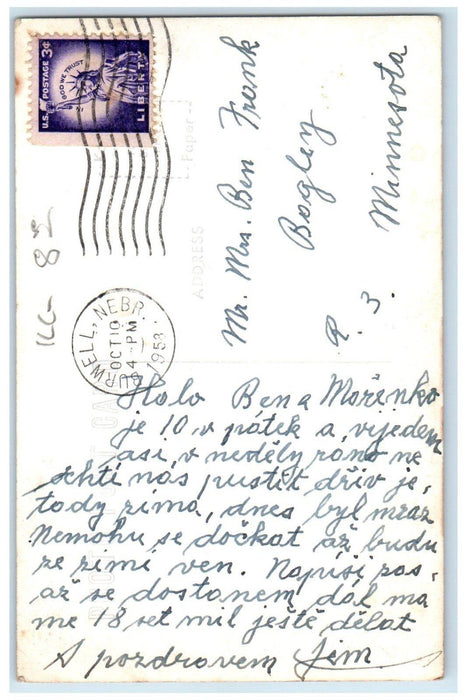 U.S. POSTAGE 3¢
IN GOD WE TRUST
LIBERTY
BURWELL, NEBR.
OCT 10
4 - PM
1958
Paper
ADDRESS
Mr. Mrs. Ben Frank
Bagley
R. 3. Minnesota
82
Halo Ben a Mařenko
je 10, v pátek a, vijedem
asi, v neděly rano ne
schti nás pustět dřív je,
tody zima, dnes byl mraz
Nemohu se dočkat až budu
ze zimi ven. Napiši zas-
až se dostanem dál ma
me 18 set mil ještě dělat
S pozdravem Jim